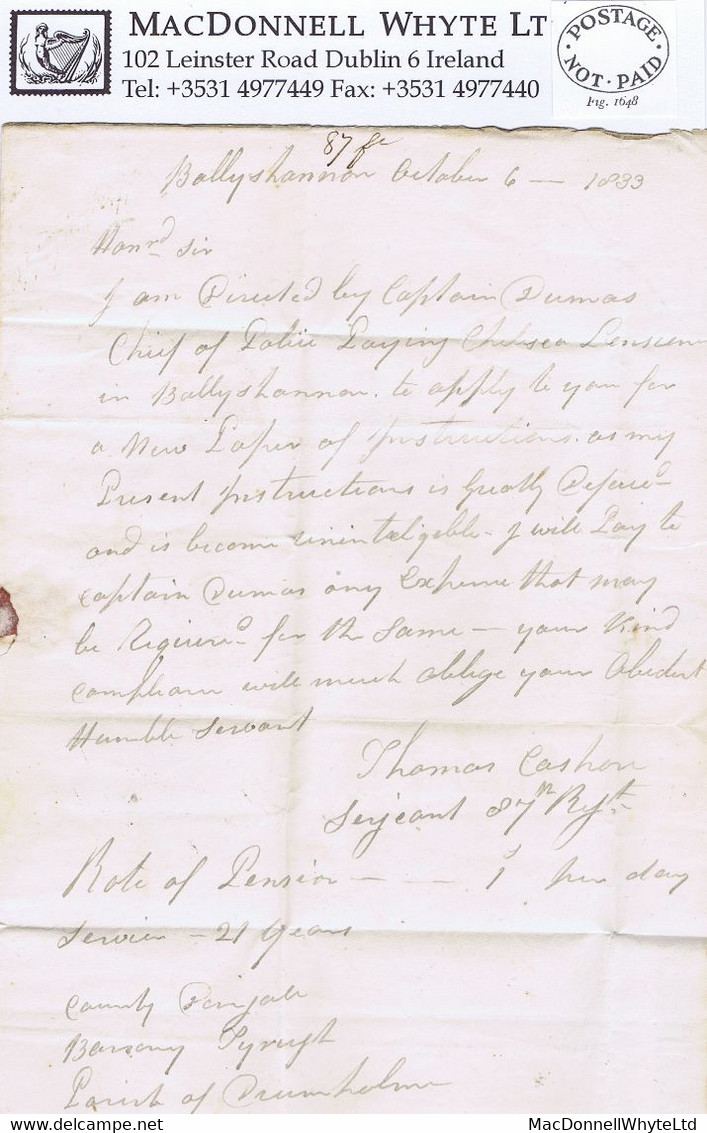 MACDONNELL WHYTE LT
102 Leinster Road Dublin 6 Ireland
Tel: +3531 4977449 Fax: +3531 4977440
POSTAGE
NOT PAID
Fig. 1648
87 f
Ballyshannon October 6 — 1833
Honrd Sir
I am Directed by Captain Dumas
Chief of Police Paying Chelsea Pensione
in Ballyshannon. to apply to you for
a New Paper of Instructions. as my
Present Instructions is Greatly Defaced
and is become unintelegible - I will Pay to
Captain Dumas any Expence that may
be Required for the Same — your Kind
Compliance will much oblige your Obedient
Humble Servant
Thomas Cashon
Serjeant 87th Regt
Rate of Pension — — — 1s per day
Service - 21 Years
County Donigale
Barony Tyrugh
Parish of Drumholme
delcampe.net
MacDonnellWhyteLtd